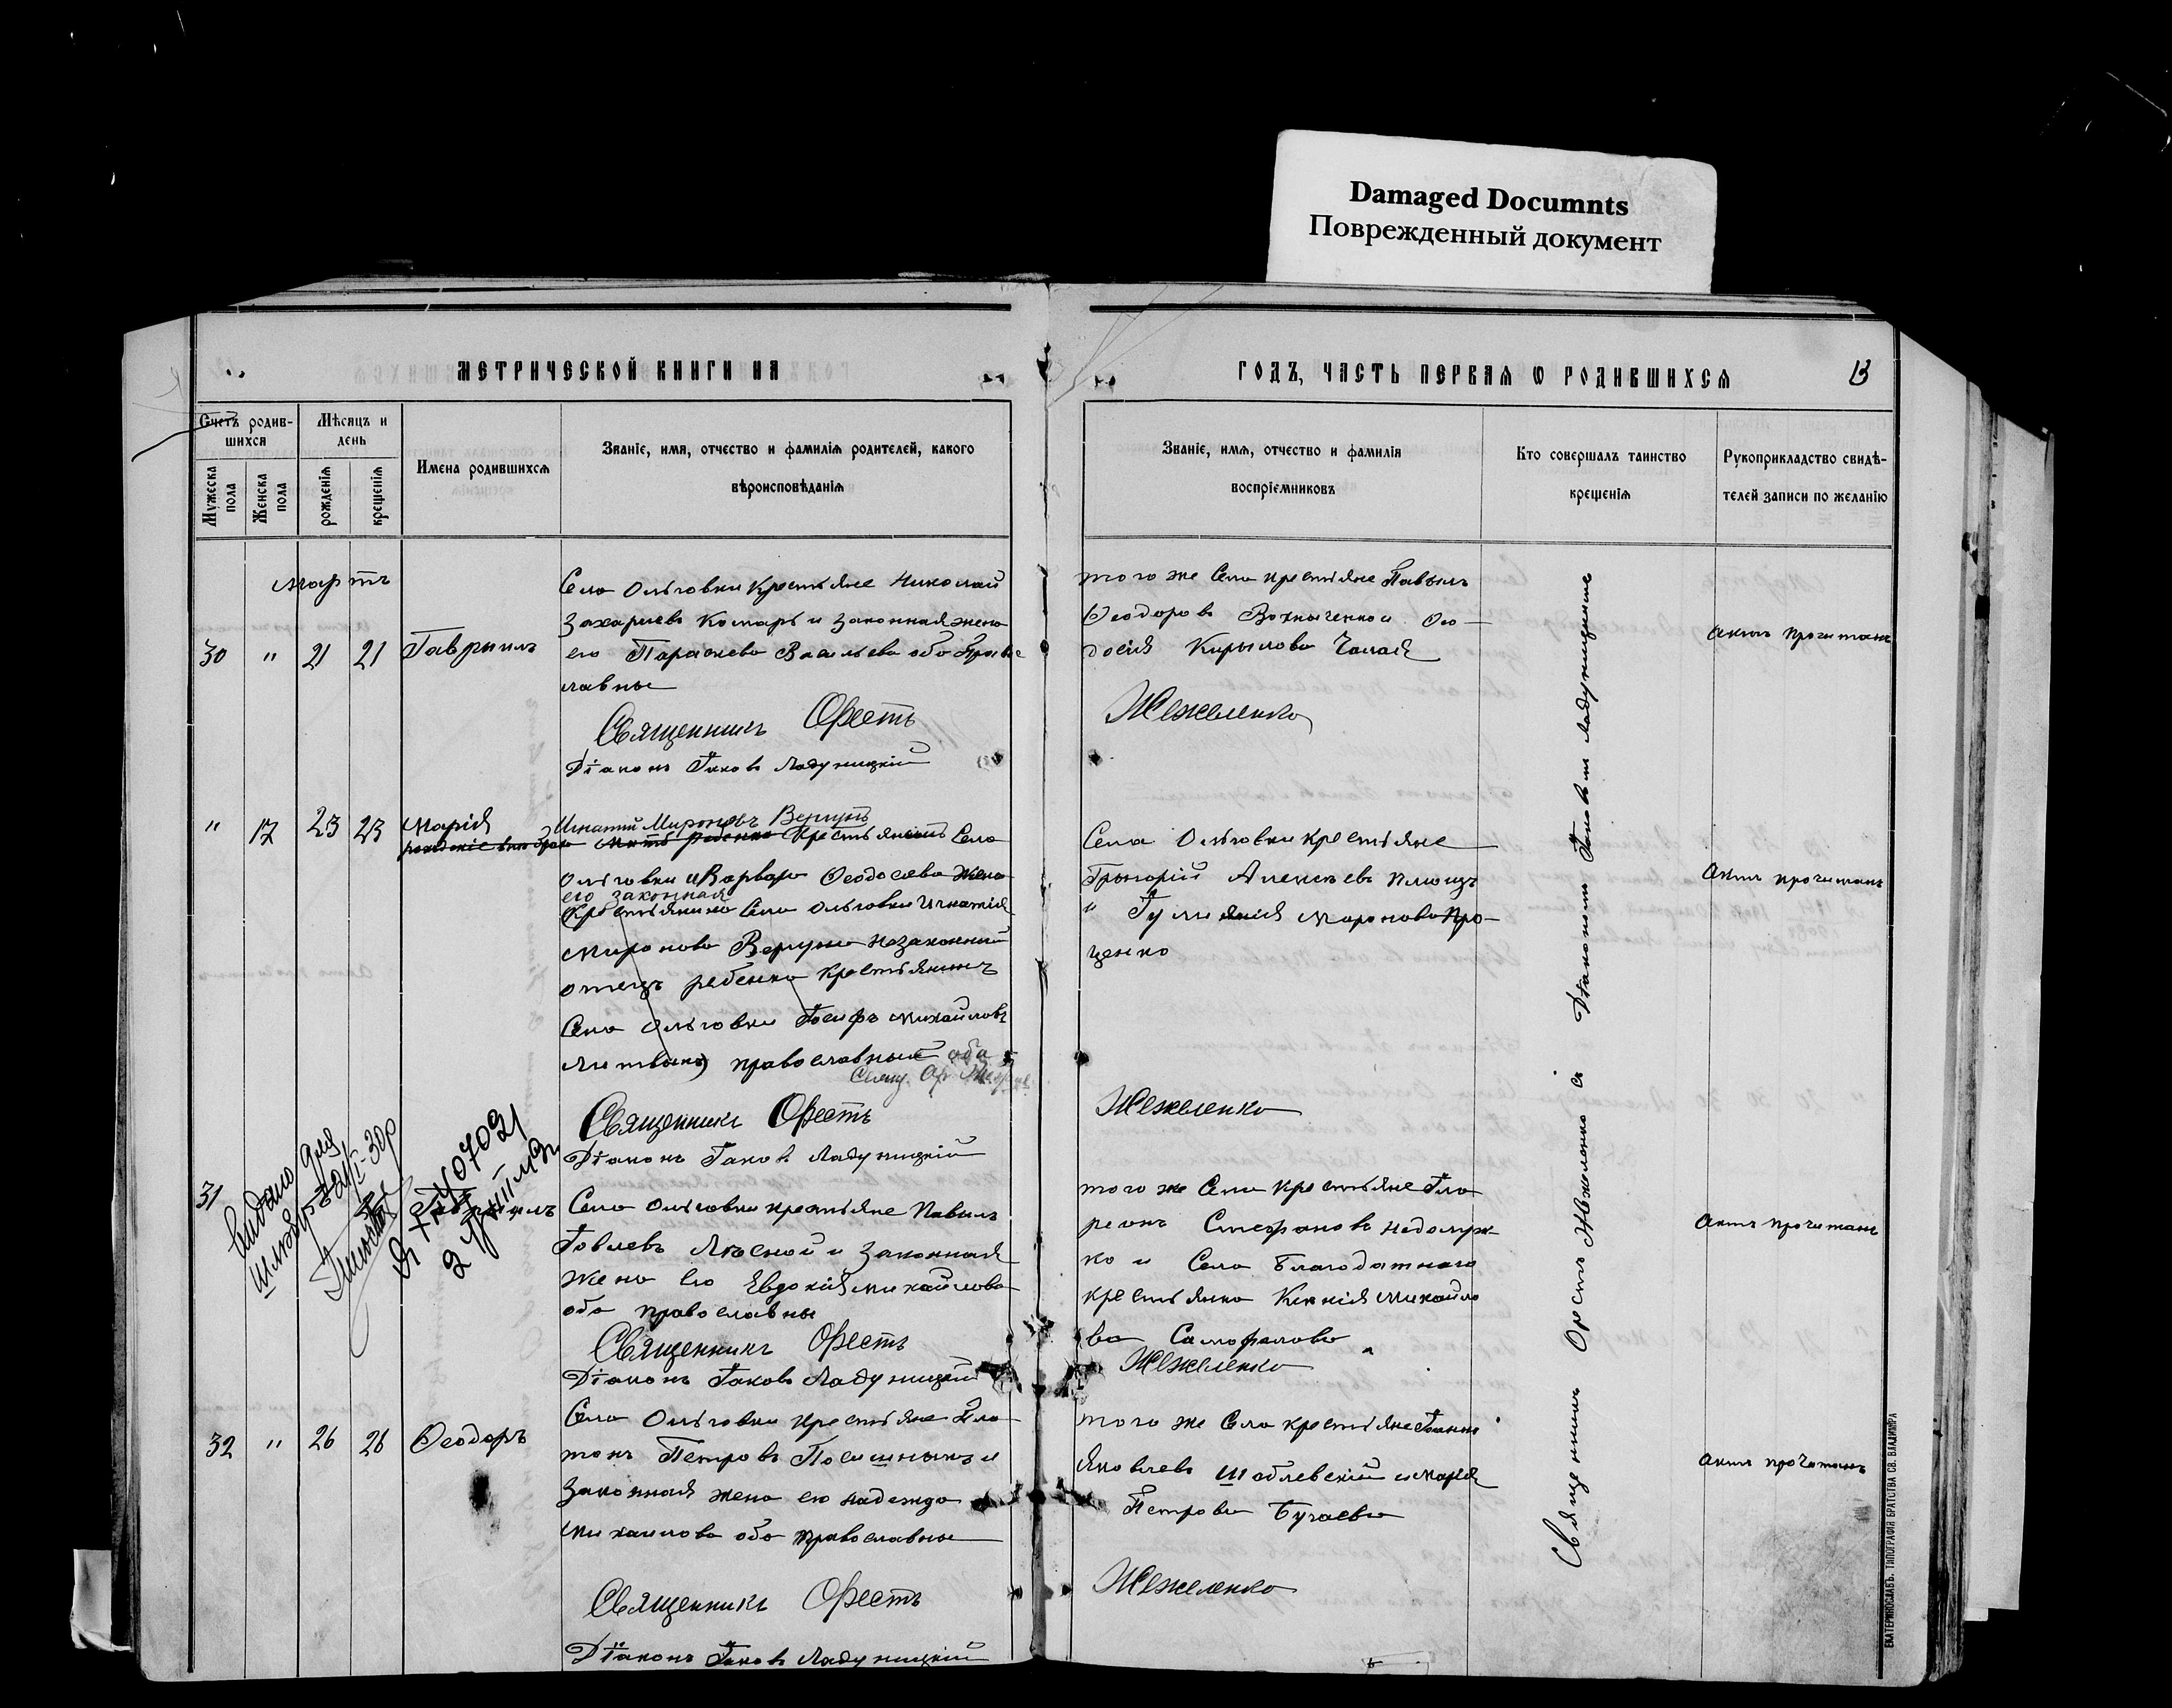 Damaged Documnts
Поврежденный документ
МЕТРИЧЕСКОЙ КНИГИ НА
ГОДЪ, ЧАСТЬ ПЕРВАЯ Ѡ РОДИВШИХСЯ
13
Счетъ родив-
шихся
Мѣсяцъ и
день
Мужеска
пола
Женска
пола
рожденія
крещенія
Имена родившихся
Званіе, имя, отчество и фамилія родителей, какого
вѣроисповѣданія
Званіе, имя, отчество и фамилія
воспріемниковъ
Кто совершалъ таинство
крещенія
Рукоприкладство свидѣ-
телей записи по желанію
мартъ
30 " 21 21 Гаврыилъ
Села Ольговки крестьяне Николай
Захариевъ Комаръ и законная жена
его Параскева Васильева оба Право
славны
Священникъ Орестъ
Діаконъ Іаковъ Ладуницкій
того же Села крестьяне Павелъ
Ѳеодоровъ и Ѳео-
досія Кырылова Чалая
Жежеленко
актъ прочитанъ
" 17 23 23 Марія
рожденіе внѣ брака
Игнатій Мироновъ Вергунъ
мать ребенка Крестьянинъ Села
Ольговки и Варвара Ѳеодосиева жена
его законная
Крестьянина Села Ольговки Игнатія
Миронова Вергуна незаконный
отецъ ребенка крестьянинъ
Села Ольговки Іосифъ Михайловъ
Литвинъ) православные оба
Свящ. Ор.
Священникъ Орестъ
Діаконъ Іаковъ Ладуницкій
Села Ольговки крестьяне
Грыгорій Алексѣевъ
" Гулианія Миронова Про-
ценко
Жежеленко
Актъ прочитанъ
31
Видано для
шлюбу
30р
ЯТ № 407021
Гаврыилъ
Села Ольговки крестьяне Павелъ
Іовлевъ Лѣсной и законная
жена его Евдокія Михайлова
оба православны
Священникъ Орестъ
Діаконъ Іаковъ Ладуницкій
того же Села крестьяне Ила
реонъ Стефановъ Недолуж-
ко и Села Благодатнаго
крестьянка Ксенія Михайло
ва Самофалова
Жежеленко
Актъ прочитанъ
32 " 26 26 Ѳеодоръ
Села Ольговки крестьяне Пла
тонъ Петровъ и
законная жена его Надежда
Михаилова оба православны
Священникъ Орестъ
Діаконъ Іаковъ Ладуницкій
того же Села крестьяне Іоаннъ
Яковлевъ Шаблевскій и Марія
Петрова Бугаева
Жежеленко
актъ прочитанъ
Священникъ Орестъ Жежеленко съ Діакономъ Іаковомъ Ладуницкимъ
ЕКАТЕРИНОСЛАВЪ. ТИПОГРАФІЯ БРАТСТВА СВ. ВЛАДИМІРА